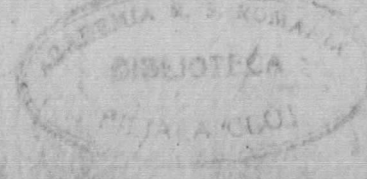 ACADEMIA R. S. ROMANIA
BIBLIOTECA
FILIALA CLUJ